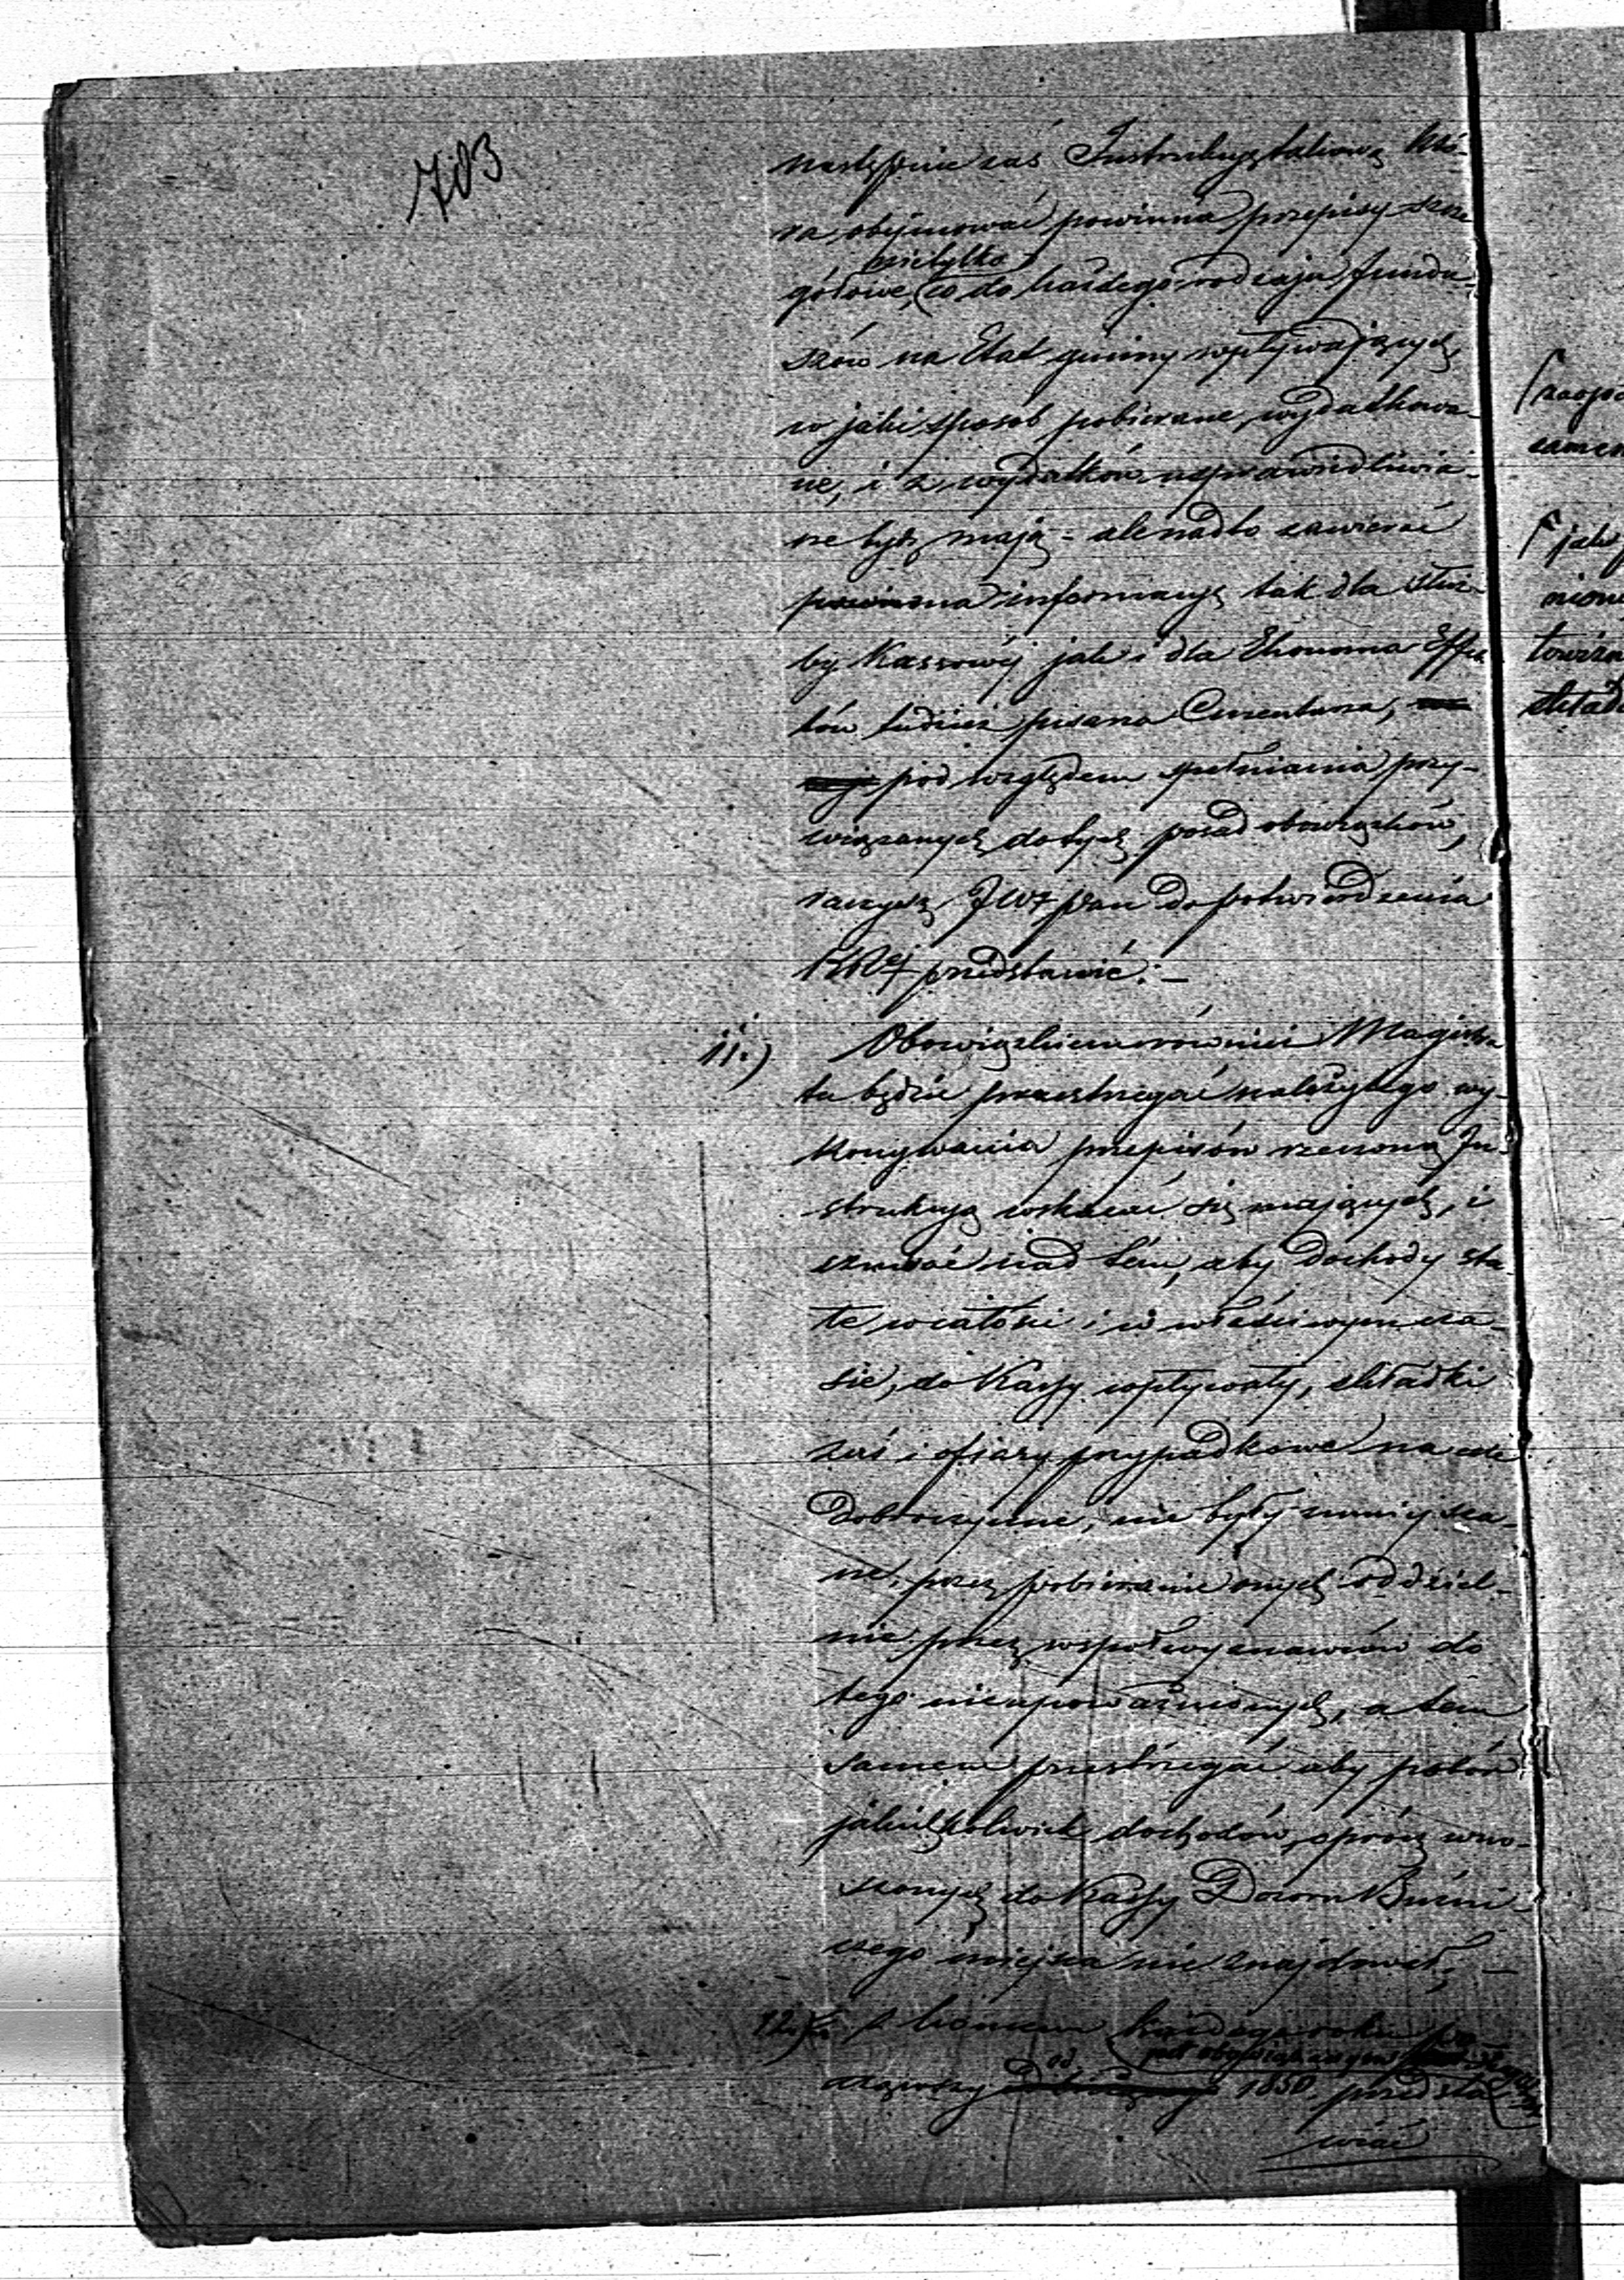 703
następnie zaś Instrukcyę takową któ-
ra obejmować powinna przepisy szcze
nietylko
gółowe, co do każdego rodzaju fundu-
szów na Etat gminy wpływających,
w jaki sposób pobierane, wydatkowa-
ne, i z wydatków usprawiedliwia-
ne bydź mają - ale nadto zawierać
powinna informacyę tak dla służ-
by Kassowéj jak i dla Ekonoma Effek
tów tudzież pisarza Cmentarza,
pod względem spełniania przy-
wiązanych do tych posad obowiązków,
raczysz JWż pan do potwierdzenia
przedstawić: -
11.) Obowiązkiem również Magistra
tu będzie przestrzegać należytego wy-
konywania przepisów rzeczoną In-
strukcyą wskazać się mających, i
czuwać nad tém, aby dochody sta-
łe w całości i w właściwym cza-
sie, do Kassy wpływały, składki
zaś i ofiary przypadkowe na cele
dobroczynne, nie były zmniejsza-
ne, przez pobieranie onych oddziel-
nie przez współwyznawców do
tego nieupoważnionych, a tém
samem przestrzegać aby pobór
jakichkolwiek dochodów, oprócz wno-
szonych do Kassy Dozoru Bóżni-
czego miejsca nie znajdował; -
12.) Z końcem każdego roku po-
cząwszy od 1850. przedsta
wiać